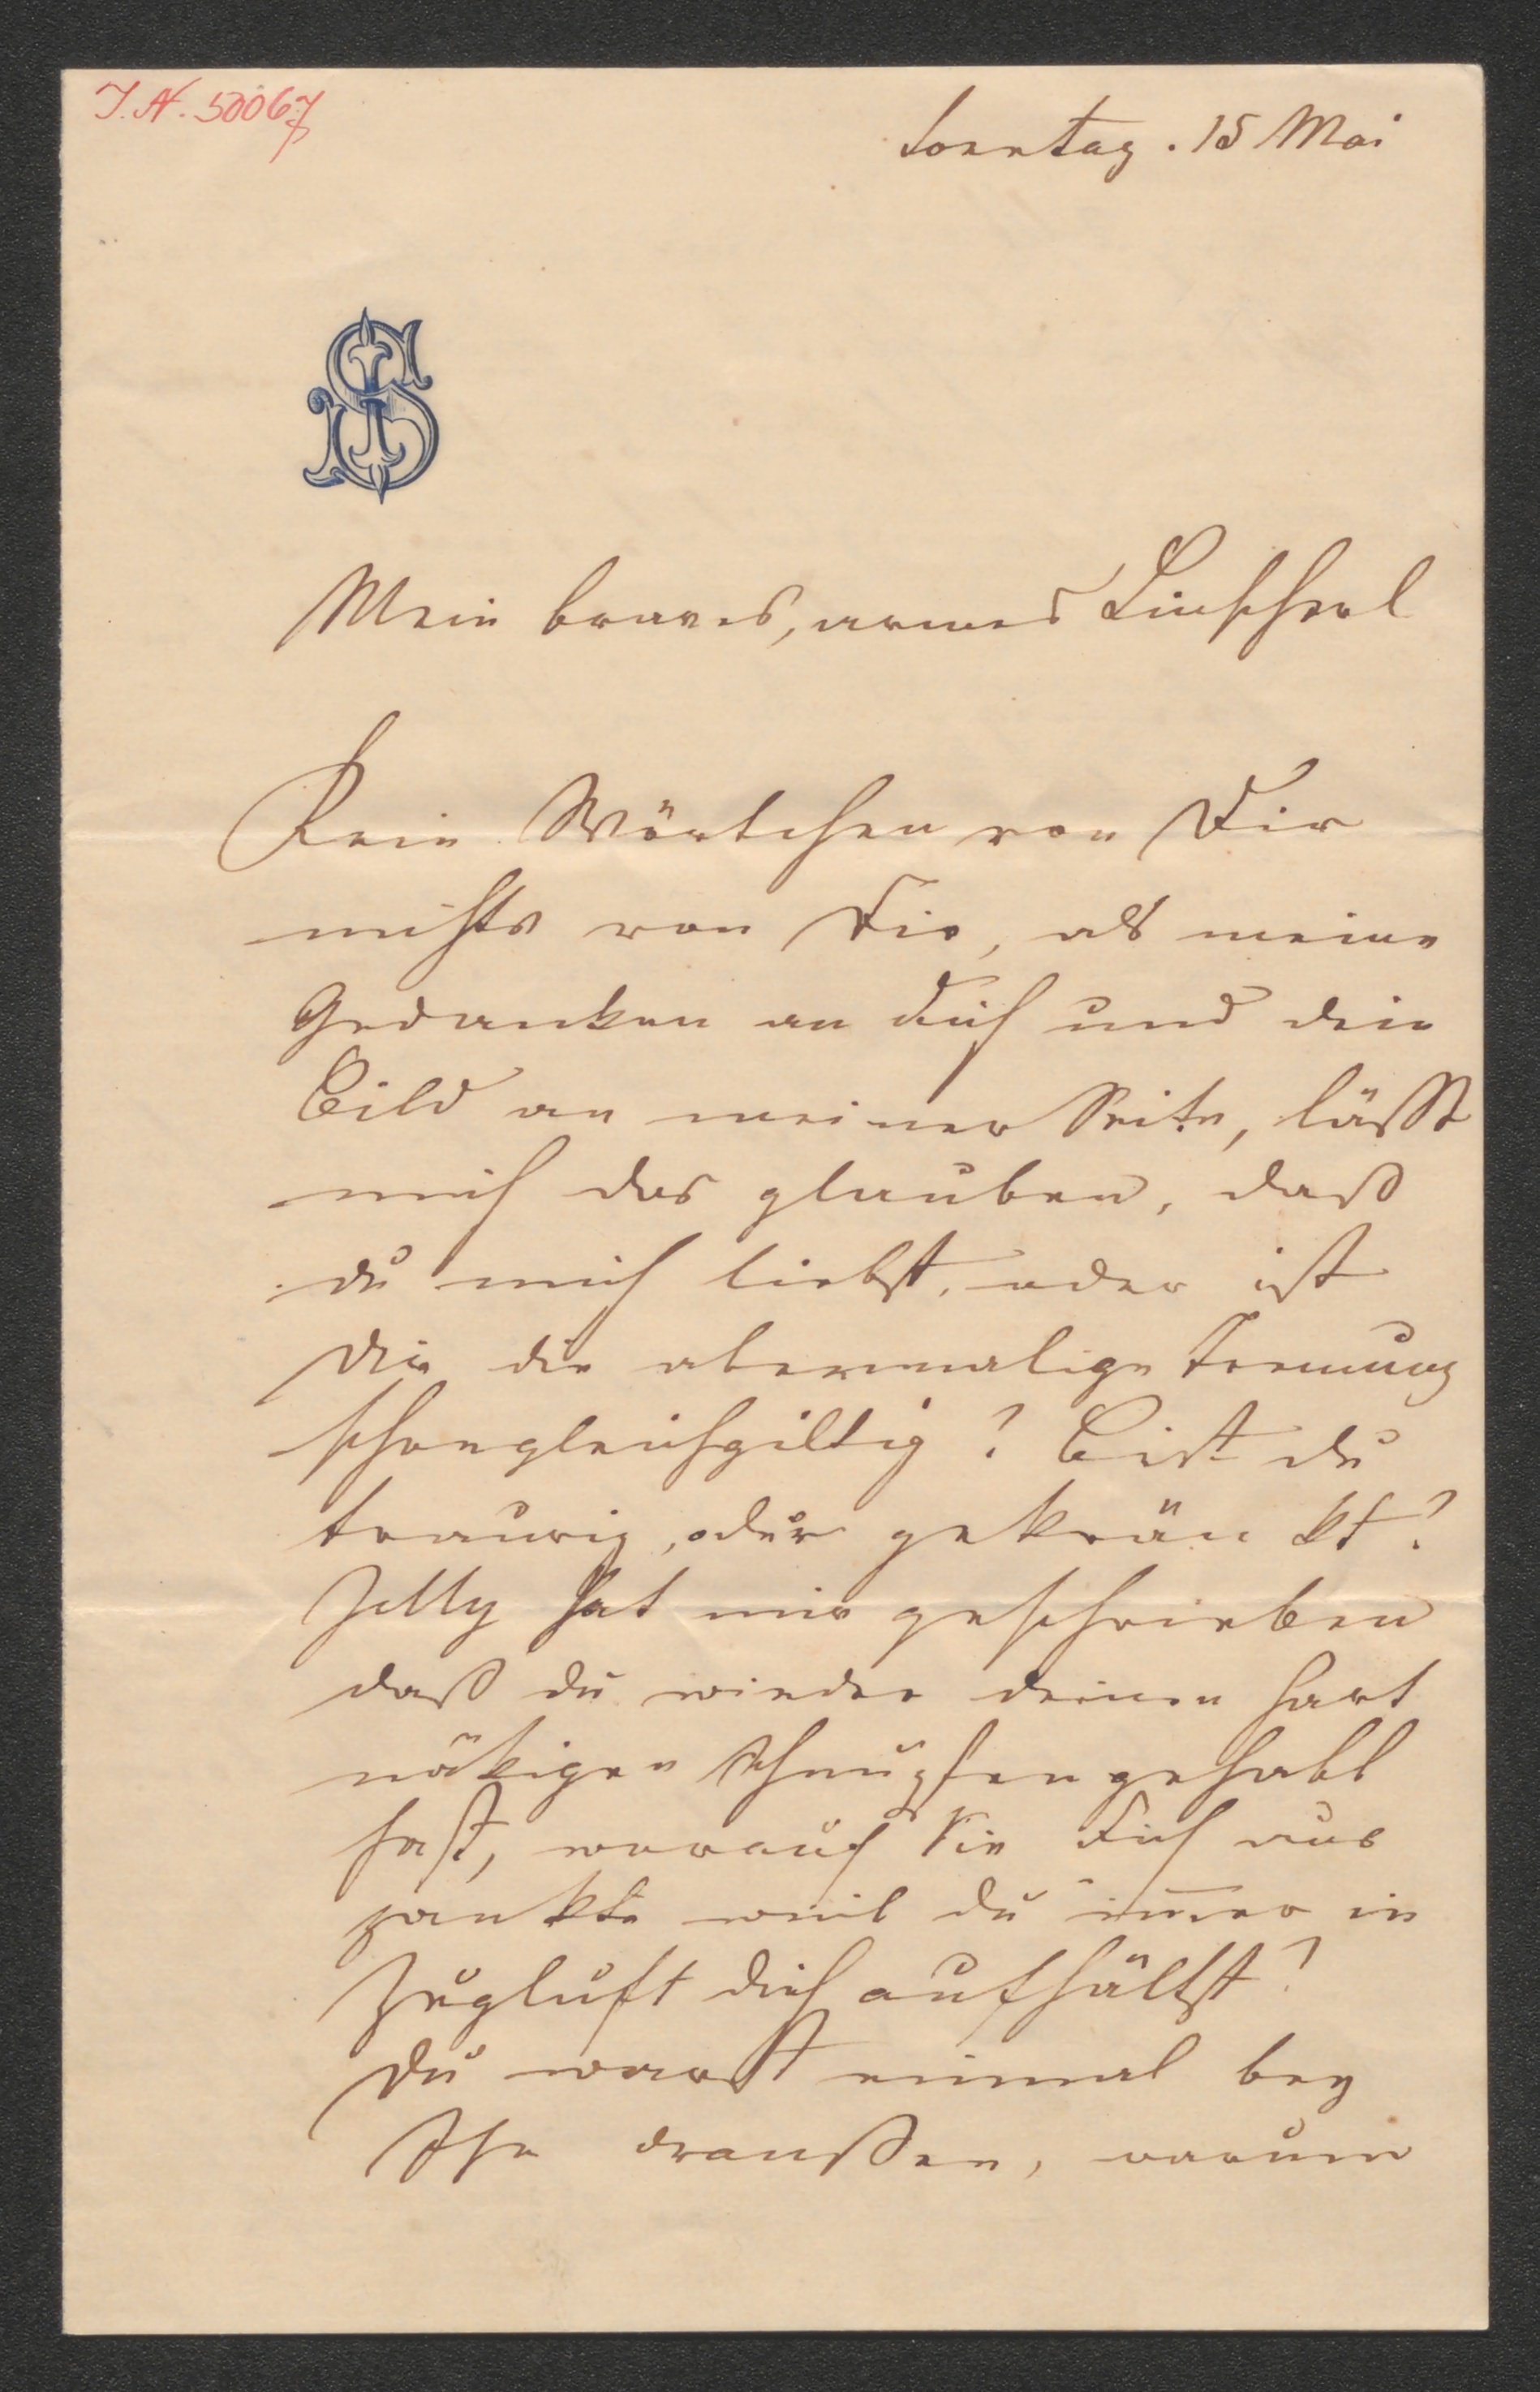 J.N. 50067
Sonntag. 15 Mai
Mein braves, armes Linscherl
Kein Wörtchen von Dir
nichts von Dir, als meine
Gedanken an dich und dein
Bild an meiner Seite, lässt
mich das glauben, daß
du mich liebst, oder ist
dir die abermalige Trennung
schon gleichgiltig? Bist du
traurig, oder gekränkt?
Jetty hat mir geschrieben
daß du wieder deinen hart
näkigen Schnupfen gehabt
hast, worauf Sie Dich aus
zankte weil du im̄er in
Zugluft dich aufhältst?
Du warst einmal bey
Ihr draußen, warum